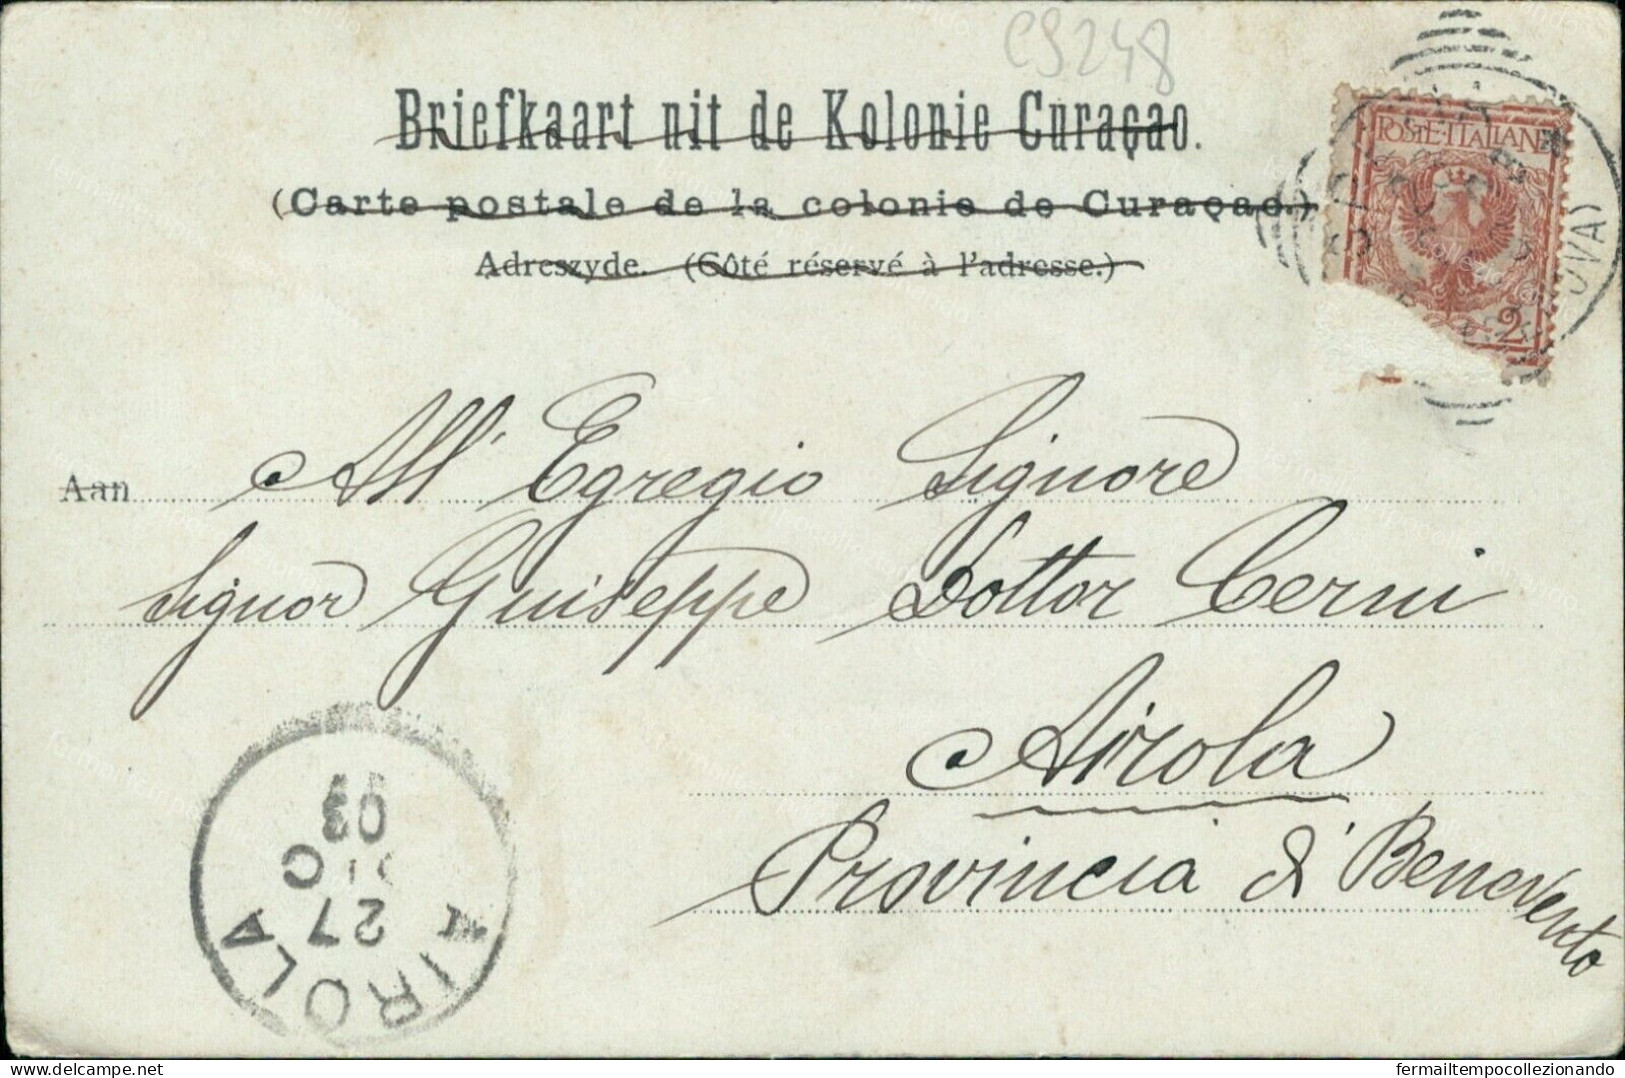 C9248
Briefkaart uit de Kolonie Curaçao.
(Carte postale de la colonie de Curaçao.)
Adreszyde. (Côté réservé à l'adresse.)
POSTE·ITALIANE
2
OVA)
Aan All' Egregio Signore
Signor Giuseppe Dottor Cerni
Airola
Provincia di Benevento
AIROLA
27
03
fermailtempocollezionando